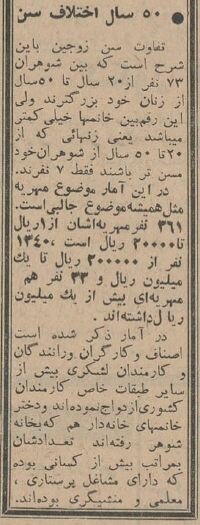 ● ۵۰ سال اختلاف سن
تفاوت سن زوجین باین
شرح است که بین شوهران
۷۳ نفر از۲۰ سال تا ۵۰سال
از زنان خود بزرگترند ولی
این رقم‌بین خانمها خیلی‌کمتر
میباشد یعنی زنهائی که از
۲۰تا ۵۰ سال از شوهران‌خود
مسن تر باشند فقط ۷ نفرند.
در این آمار موضوع مهریه
مثل‌همیشه‌موضوع جالبی‌است.
۳۶۱ نفر مهریه‌اشان از۱ریال
تا۲۰۰۰۰ ریال است ،۱۳۴۰
نفر از ۲۰۰۰۰۰ ریال تا یك
میلیون ریال و ۳۳ نفر هم
مهریه‌ای بیش از یك میلیون
ریال‌داشته‌اند .
در آمار ذکر شده است
اصناف و کارگران ورانندگان
و کارمندان لشگری بیش از
سایر طبقات خاص کارمندان
کشوری‌ازدواج‌نموده‌اند ودختر
خانمهای خانه‌دار هم که‌بخانه
شوهر رفته‌اند تعدادشان
بمراتب بیش از کسانی بوده
که دارای مشاغل پرستاری ،
معلمی و منشیگری بوده‌اند.